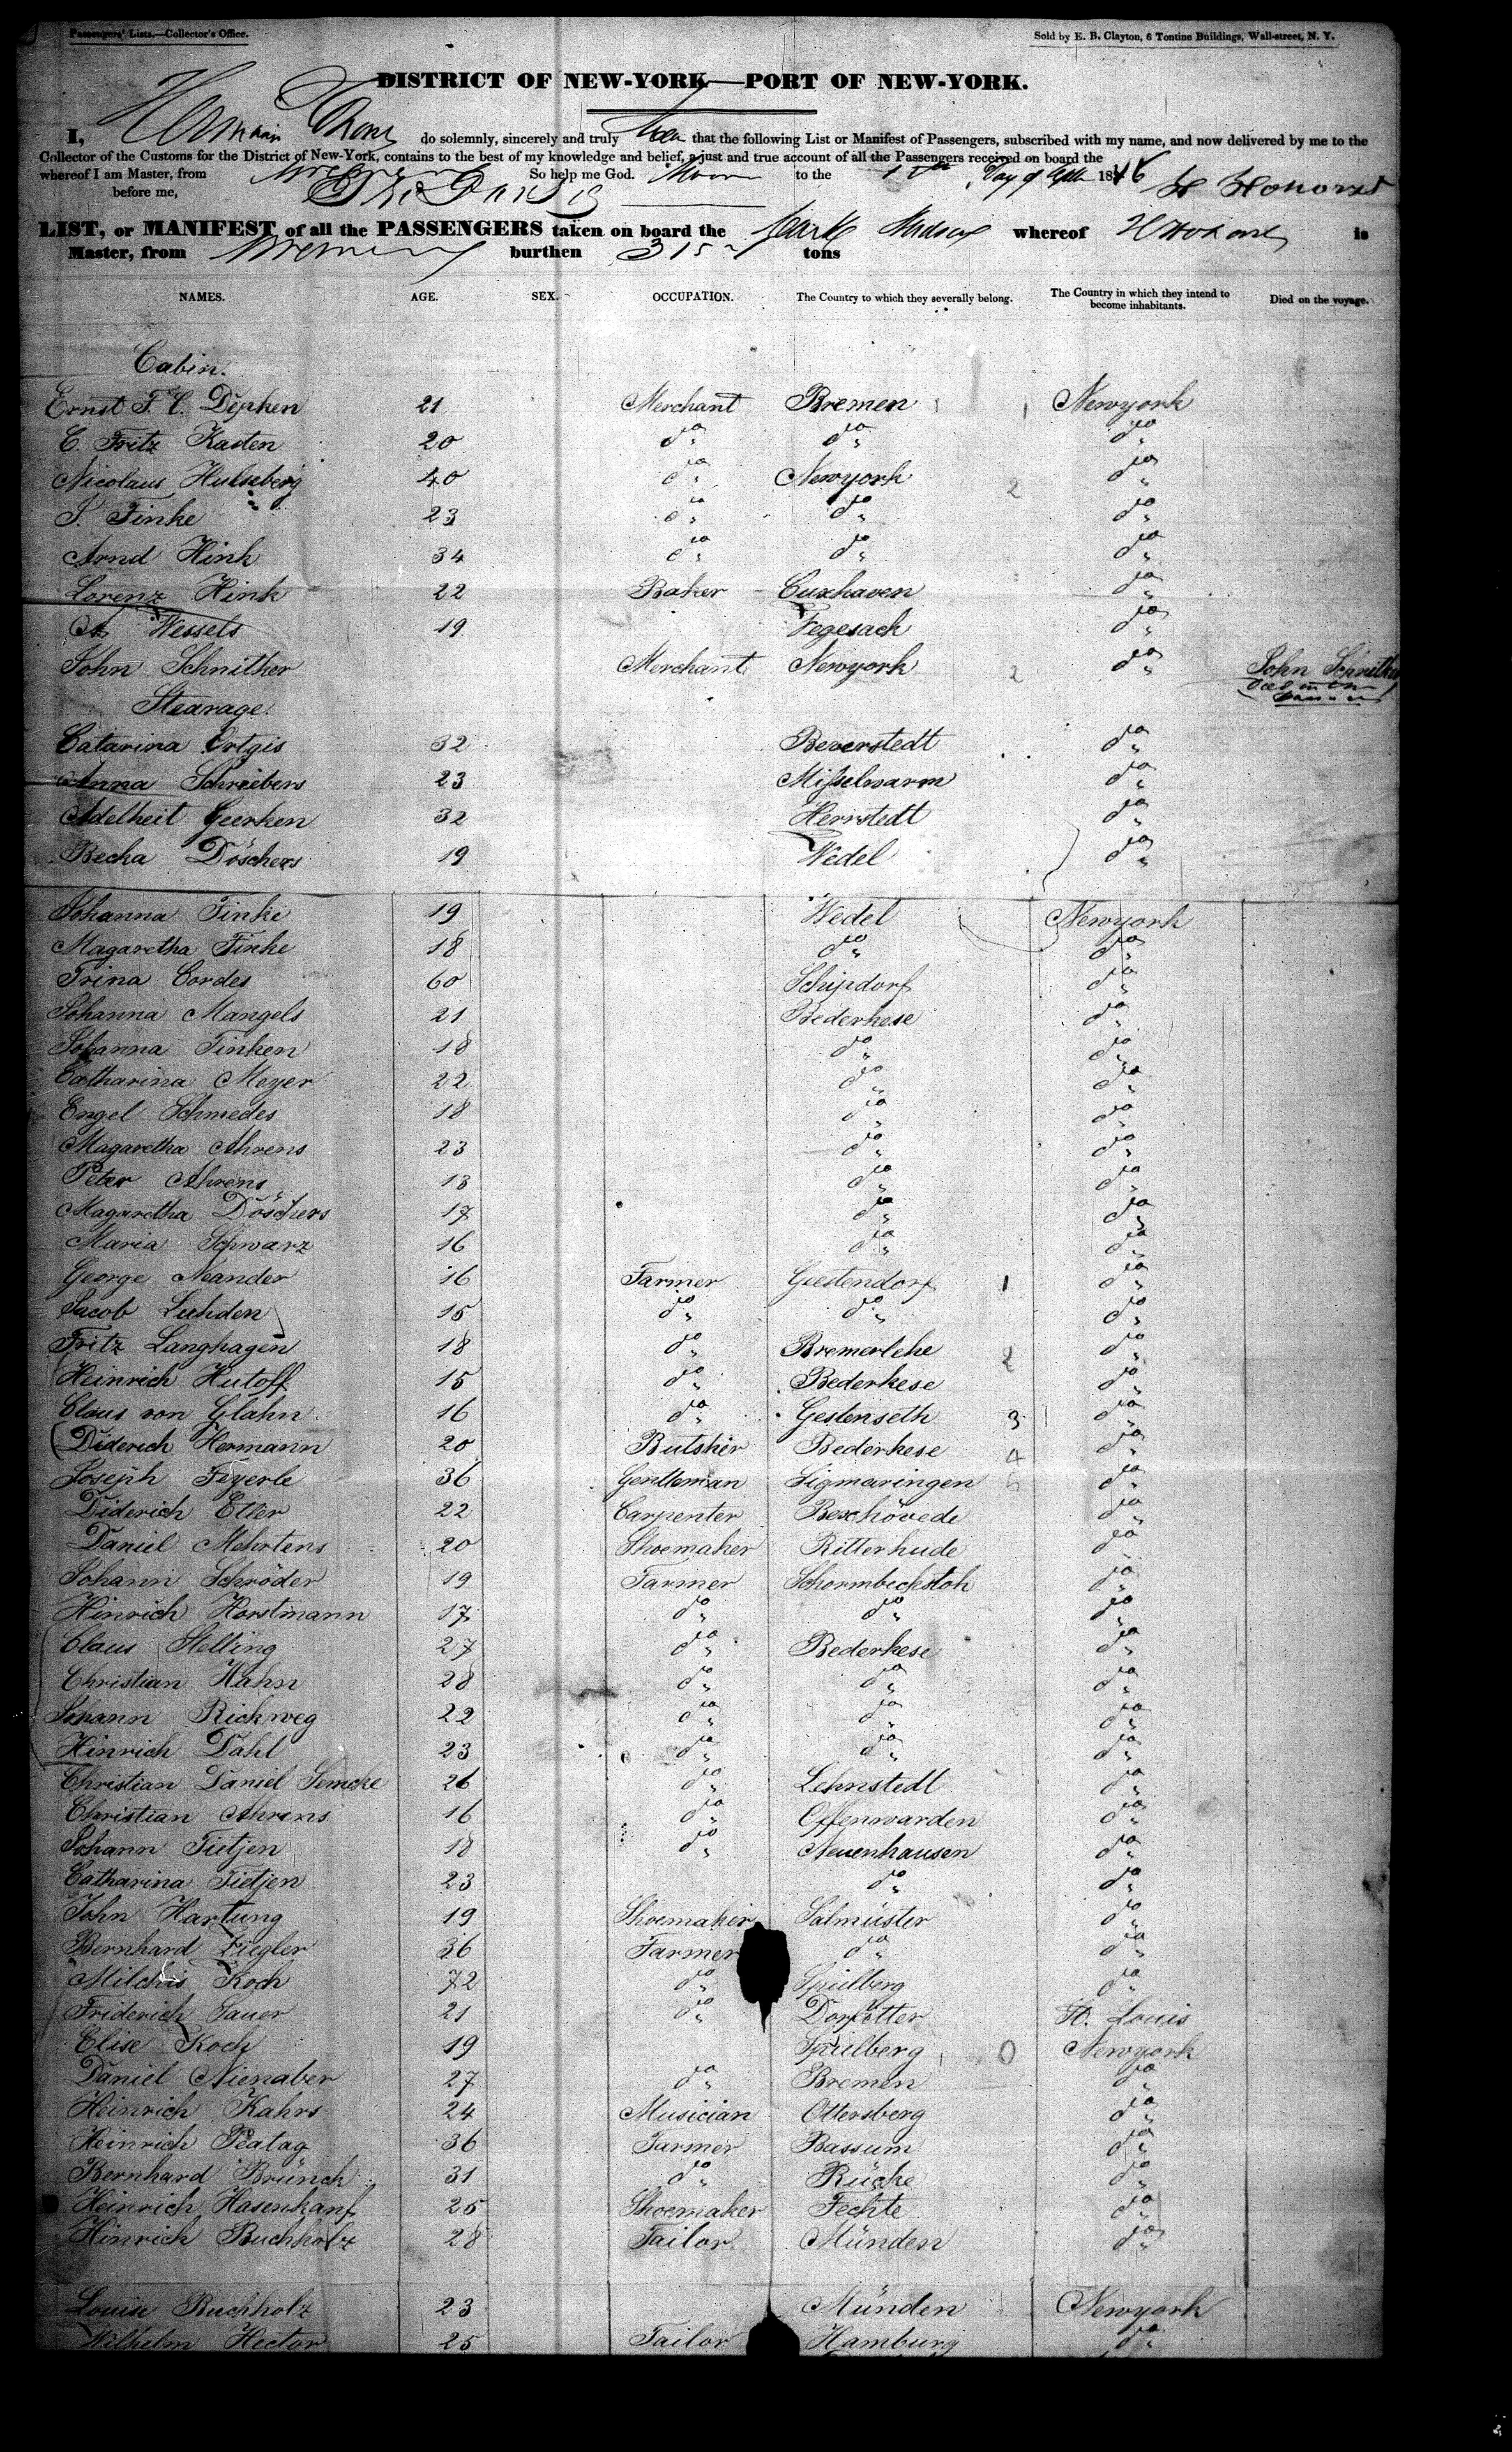 Passengers' Lists.—Collector's Office. Sold by E. B. Clayton, 6 Tontine Buildings, Wall-street, N. Y.
DISTRICT OF NEW-YORK—PORT OF NEW-YORK.
I, do solemnly, sincerely and truly that the following List or Manifest of Passengers, subscribed with my name, and now delivered by me to the
Collector of the Customs for the District of New-York, contains to the best of my knowledge and belief, a just and true account of all the Passengers received on board the
whereof I am Master, from Bremen So help me God. to the Day of 1846
before me,
LIST, or MANIFEST of all the PASSENGERS taken on board the whereof is
Master, from Bremen burthen 315 tons
NAMES. AGE. SEX. OCCUPATION. The Country to which they severally belong. The Country in which they intend to become inhabitants. Died on the voyage.
Cabin.
Ernst F. C. Dipken 21 Merchant Bremen 1 Newyork
C. Fritz Kasten 20 do do do
Nicolaus Hulseberg 40 do Newyork 2 do
J. Finke 23 do do do
Arnd Hink 34 do do do
Lorenz Hink 22 Baker Cuxhaven do
Wessels 19 Fegesack do
John Schnitker Merchant Newyork 2 do John Schnitker
Stearage.
Catarina Ortgis 32 Beverstedt do
Anna Schriebers 23 Misselwarm do
Adelheit Geerken 32 Herrstedt do
Becka Döschers 19 Wedel do
Johanna Finke 19 Wedel Newyork
Magaretha Finke 18 do do
Trina Cordes 60 Schipdorf do
Johanna Mangels 21 Bederkese do
Johanna Finken 18 do do
Catharina Meyer 22 do do
Engel Schmedes 18 do do
Magaretha Ahrens 23 do do
Peter Ahrens 13 do do
Magaretha Döschers 17 do do
Maria Schwarz 16 do do
George Neander 16 Farmer Geestendorf 1 do
Jacob Luhden 15 do do do
Fritz Langhagen 18 do Bremerlehe 2 do
Heinrich Hutoff 15 do Bederkese do
Claus von Glahn 16 do Gestenseth 3 do
Diderich Hermann 20 Butsher Bederkese 4 do
Joseph Feyerle 36 Gentleman Sigmaringen 5 do
Diderich Etler 22 Carpenter Beschövede do
Daniel Mehrtens 20 Shoemaker Ritterhude do
Johann Schröder 19 Farmer Schormbeckstoh do
Hinrich Horstmann 17 do do do
Claus Stelling 27 do Bederkese do
Christian Hahn 28 do do do
Johann Rickweg 22 do do do
Hinrich Dahl 23 do do do
Christian Daniel Semcke 26 do Lehnstedt do
Christian Ahrens 16 do Offenwarden do
Johann Tietjen 18 do Neuenhausen do
Catharina Tietjen 23 do do
John Hartung 19 Shoemaker Salmüster do
Bernhard Ziegler 36 Farmer do do
Milchis Koch 72 do Spielberg do
Friderich Sauer 21 do St. Louis
Elise Koch 19 Spielberg 0 Newyork
Daniel Nienaber 27 do Bremen do
Heinrich Kahrs 24 Musician Ottersberg do
Heinrich Peatag 36 Farmer Bassum do
Bernhard Brünch 31 do Rücke do
Heinrich Hasenkanf 25 Shoemaker Fechte do
Hinrich Buchholz 28 Tailor Münden do
Louise Buchholz 23 Münden Newyork
Wilhelm Hector 25 Tailor Hamburg do